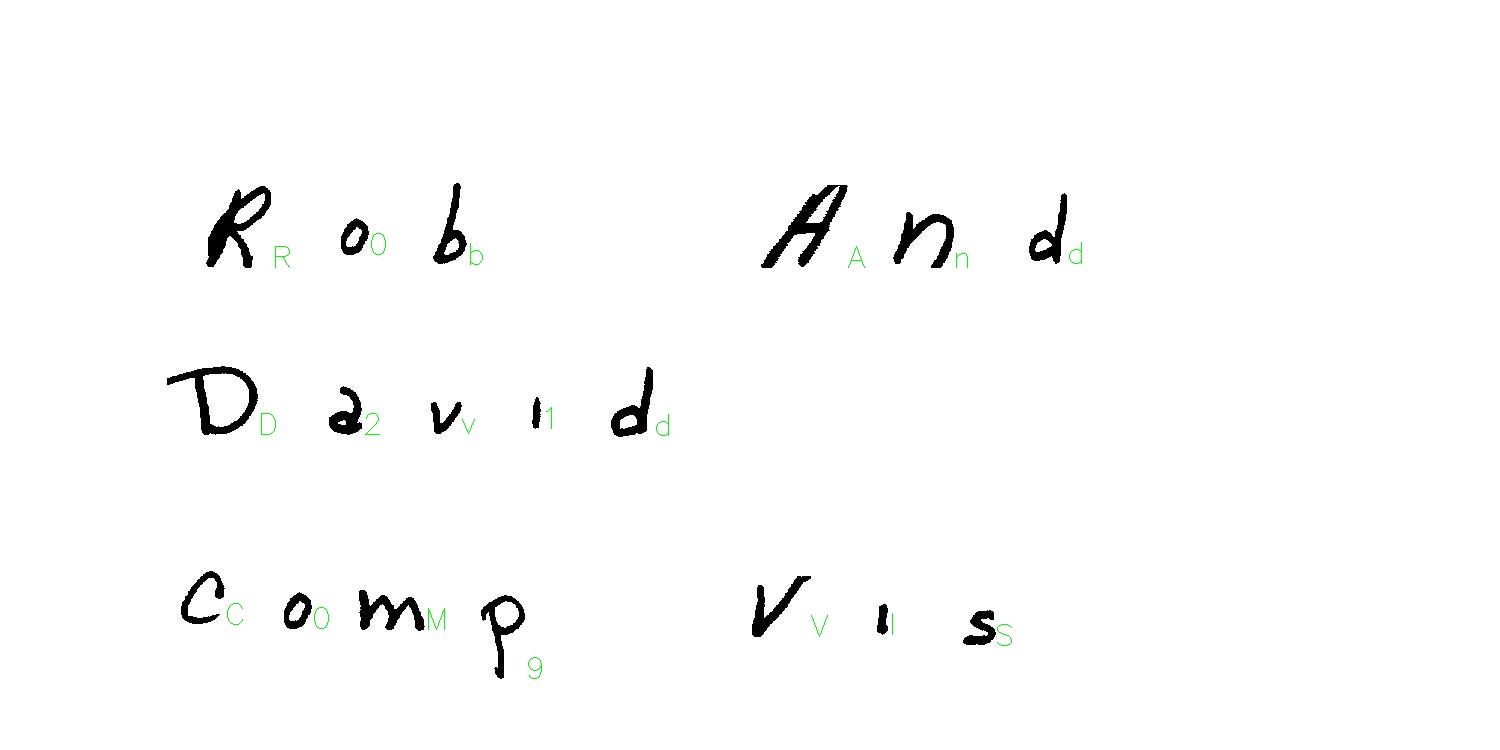 R R o 0 b b A A n n d d
D D a 2 v v ı 1 d d
C C o 0 m M p 9 V V ı I s S